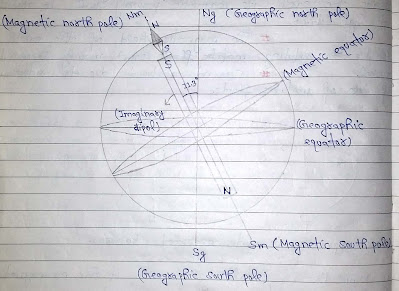 Nm
Ng (Geographic north pole)
(Magnetic north pole)
N
S
S
(Magnetic equator)
11.3°
(Imaginary
dipol)
(Geographic
equator)
N
Sm (Magnetic south pole)
Sg
(Geographic south pole)